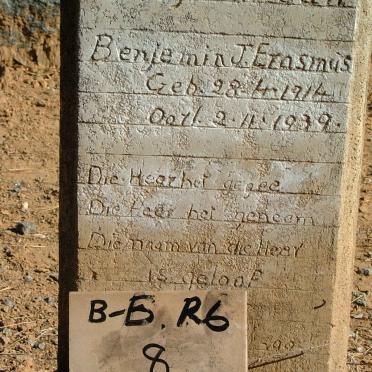 Benjemin J. Erasmus
Geb. 28.4.1914
Oorl. 2.11.1939.
Die Heer het gegee
Die Heer het geneem
Die naam van die Heer
is geloof
B-E. R6
8